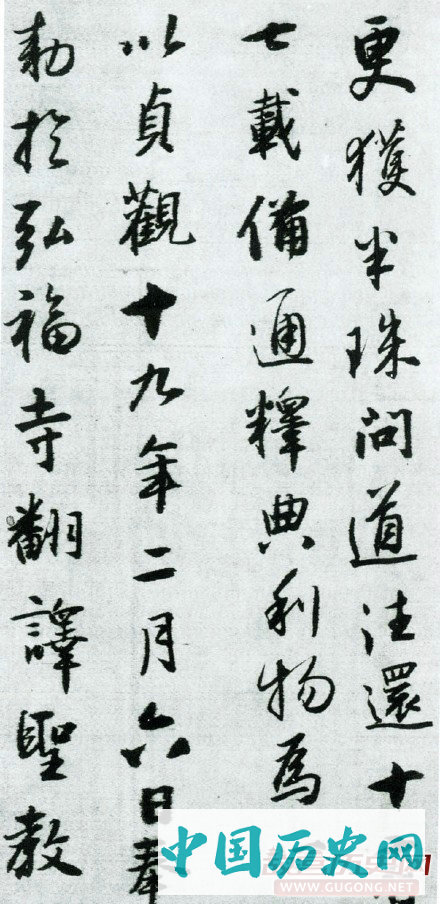 更獲半珠問道往還十
七載備通釋典利物爲
以貞觀十九年二月六日奉
勅於弘福寺翻譯聖教
中国历史网
WWW.GUGONG.NET